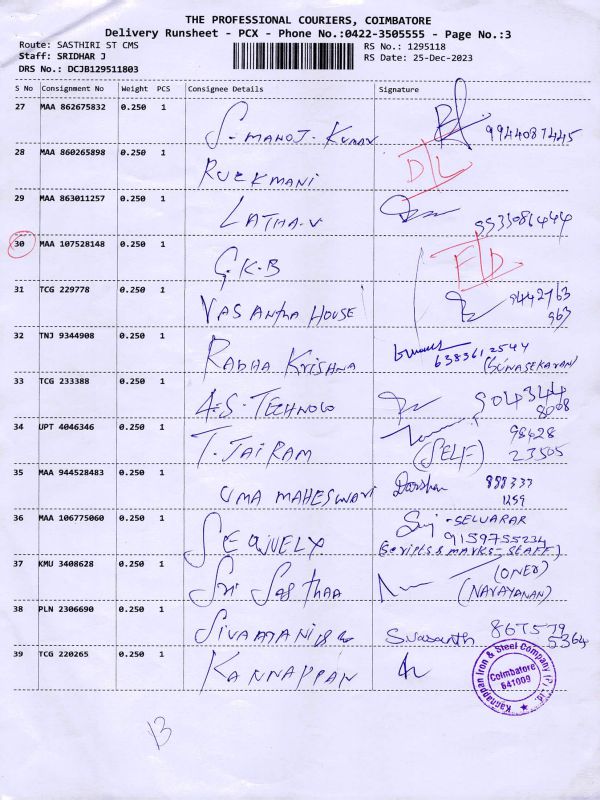 THE PROFESSIONAL COURIERS, COIMBATORE
Delivery Runsheet - PCX - Phone No.:0422-3505555 - Page No.:3
Route: SASTHIRI ST CMS RS No.: 1295118
Staff: SRIDHAR J RS Date: 25-Dec-2023
DRS No.: DCJB129511803
S No Consignment No Weight PCS Consignee Details Signature
27 MAA 862675832 0.250 1 S-MANOJ-KUMAR 9944087445
28 MAA 860265898 0.250 1 RUKKMANI D/L
29 MAA 863011257 0.250 1 LATHA-V
30 MAA 107528148 0.250 1 G.K-B F/D
31 TCG 229778 0.250 1 VASANTHA HOUSE 9442763
963
32 TNJ 9344908 0.250 1 RADHA KRISHNA 6383612544
(GUNASEKARAN)
33 TCG 233388 0.250 1 A-S-TECHNOLO 904344
8008
34 UPT 4046346 0.250 1 T.JAIRAM (SELF) 98428
23505
35 MAA 944528483 0.250 1 UMA MAHESWARI Darshan 888337
1259
36 MAA 106775060 0.250 1 SEQUELX -SELVARAR
9159755234
(scripts & marks-STAFF)
37 KMU 3408628 0.250 1 Sri SasThaa (ONER)
(NARAYANAN)
38 PLN 2306690 0.250 1 867579
5364
39 TCG 220265 0.250 1 KANNAPPAN
Kannappan Iron & Steel Company (P) Ltd.
Coimbatore
641009
13